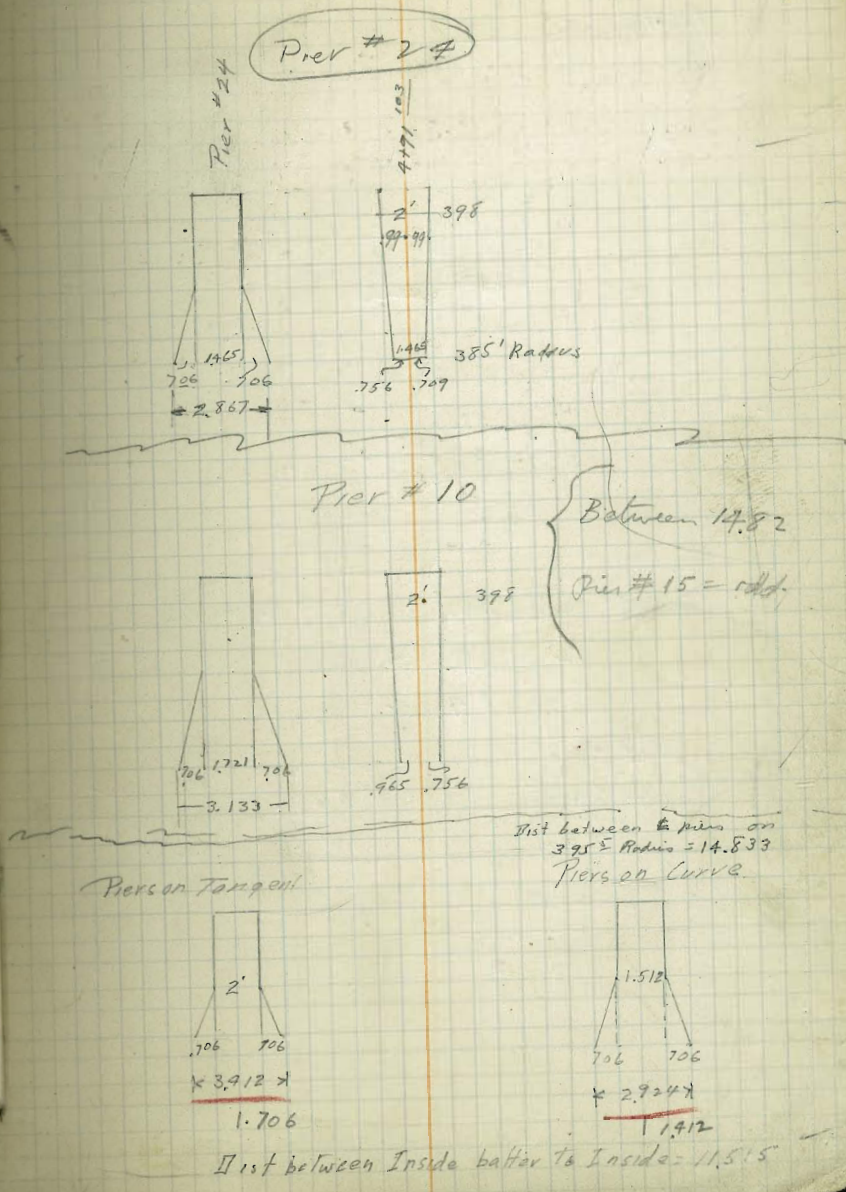 Pier # 24
Pier #24
4+91 103
2' 398
.99 .99
1.465
.706 .706
2.867
1.465 385' Radius
.756 .709
Pier # 10
Between 14.82
Pier # 15 =
2' 398
.706 1.721 .706
3.133
.965 .756
Dist between ₵ piers on
395 5 Radius = 14.833
Piers on Tangent
Piers on Curve
2'
.706 706
3.412
1.706
1.512
706 706
2.924
1.412
Dist between Inside batter to Inside = 11.515